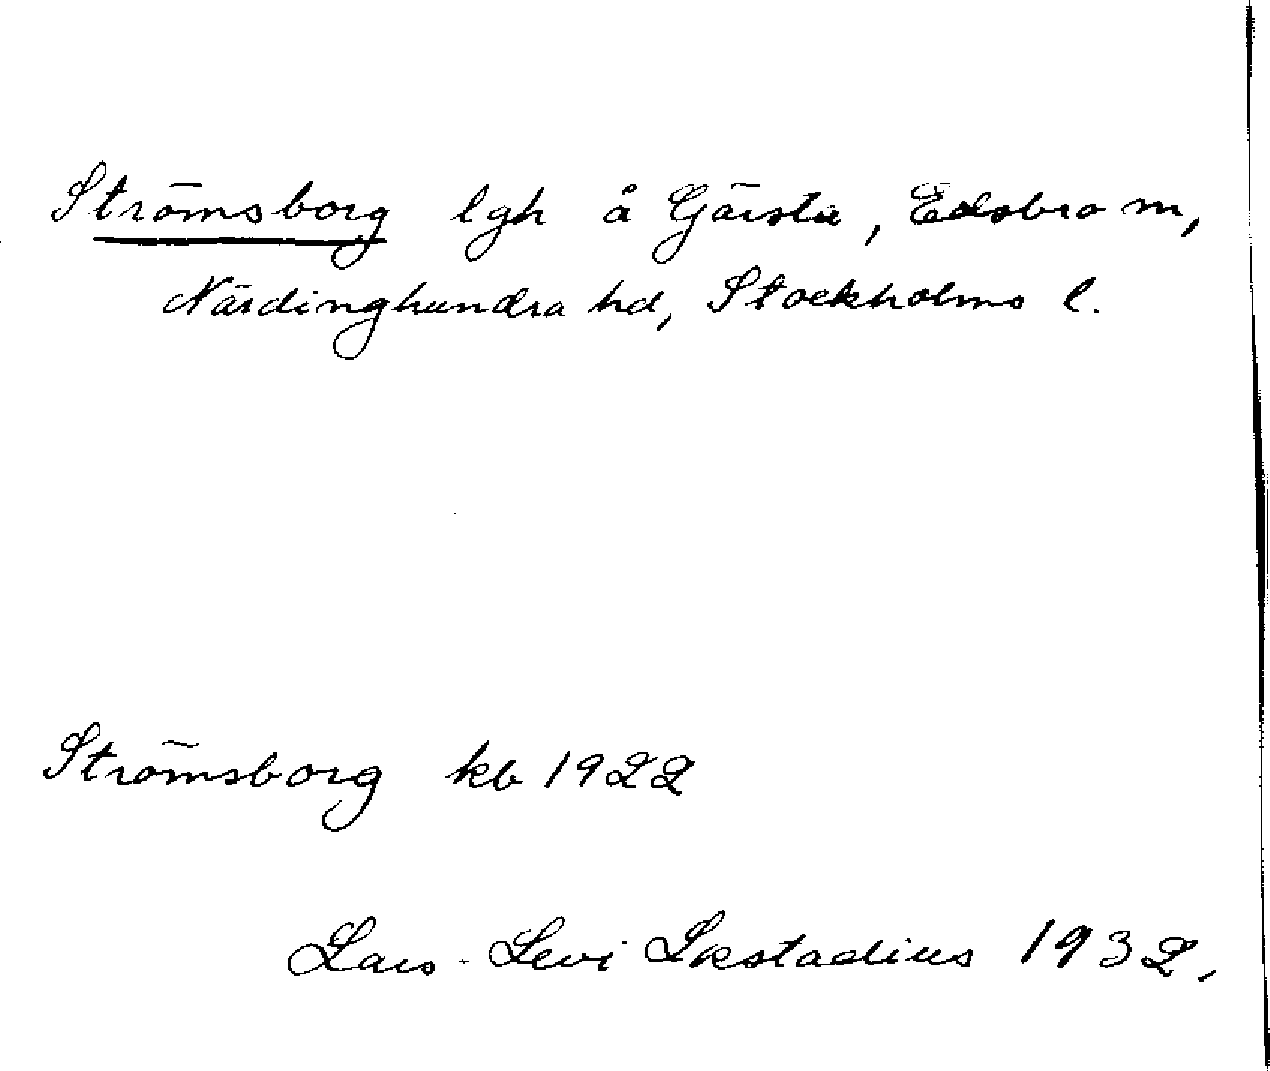 Strömsborg lgh å Gärsta, Edsbro sn,
Närdinghundra hd, Stockholms l.
Strömsborg kb 1922
Lars-Levi Læstadius 1932,